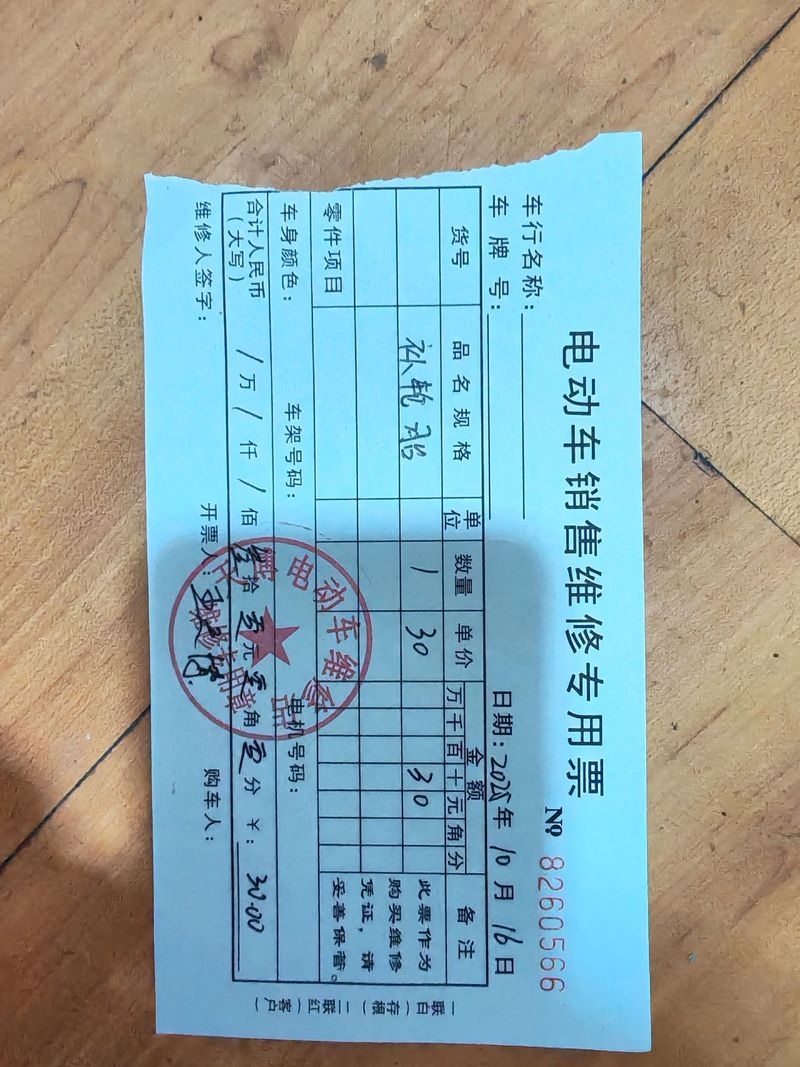 电动车销售维修专用票
№ 8260566
车行名称：
车牌号：
日期：2025年10月16日
货号 品名规格 单位 数量 单价 金额 备注
万 千 百 十 元 角 分
补轮胎 1 30 30
此票作为
购买维修
凭证，请
妥善保管。
零件项目
车身颜色： 车架号码： 电机号码：
合计人民币
（大写） / 万 / 仟 / 佰 叁 拾 零 元 零 角 零 分 ￥：30.00
维修人签字： 开票人： 购车人：
一联（白）存根 二联（红）客户
电动车维修
专用章